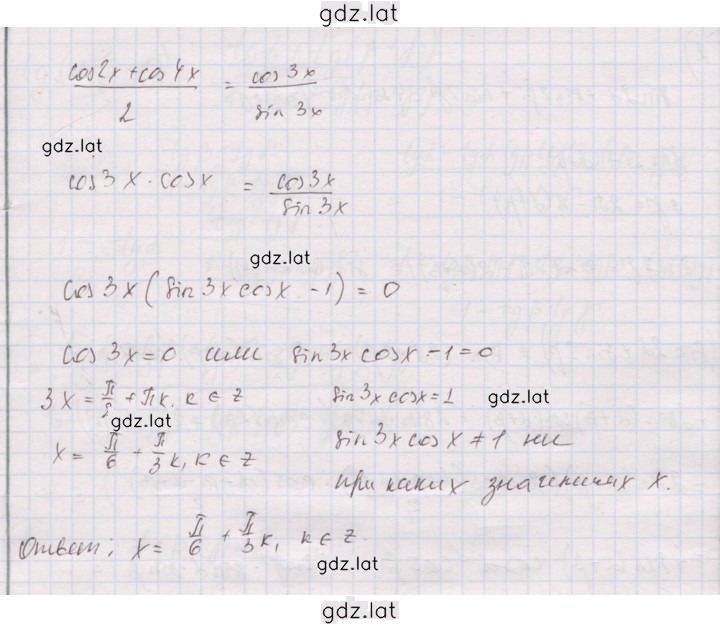 gdz.lat
cos2x+cos4x / 2 = cos3x / sin 3x
gdz.lat
cos3x · cosx = cos3x / sin3x
gdz.lat
cos3x(sin3x cosx - 1) = 0
cos3x=0 или sin3x cosx - 1 = 0
3x = π/2 + πk, k ∈ z sin3x cosx = 1 gdz.lat
gdz.lat
x = π/6 + π/3 k, k ∈ z sin3x cosx ≠ 1 ни
при каких значениях x.
Ответ: x = π/6 + π/3 k, k ∈ z.
gdz.lat
gdz.lat